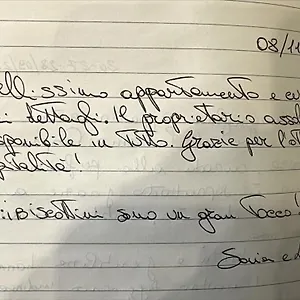 08/11
ellissimo appartamento e cu
i dettagli. Il proprietario assol
sponibile in tutto. Grazie per l'o
pitalità!
i Biscottini sono un gran tocco!
Sonia e